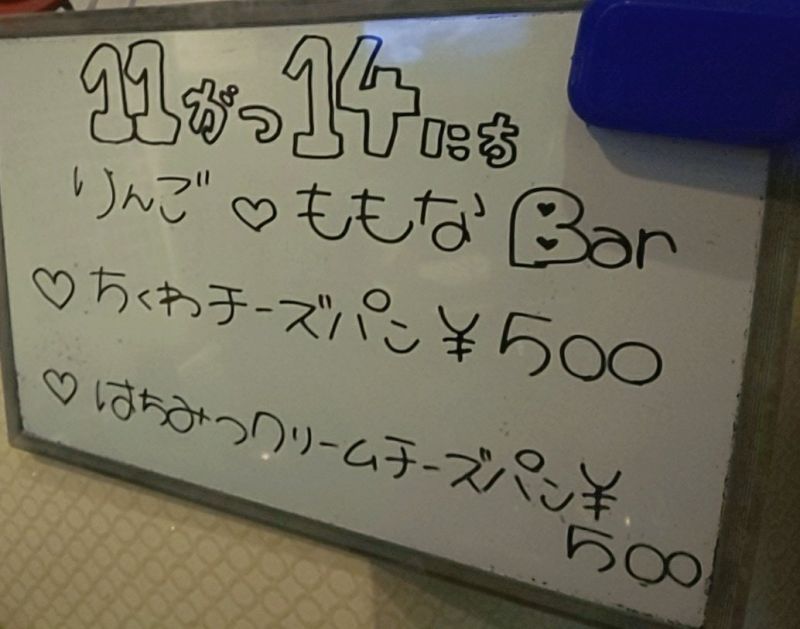 11がつ14にち
りんご♡ももなBar
♡ちくわチーズパン¥500
♡はちみつクリームチーズパン¥
500